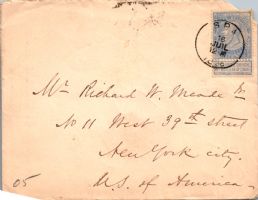 SPA
16
JUIL
12-M
Mr Richard W. Meade Jr
No 11 West 39th street
New York city.
U.S. of America
05